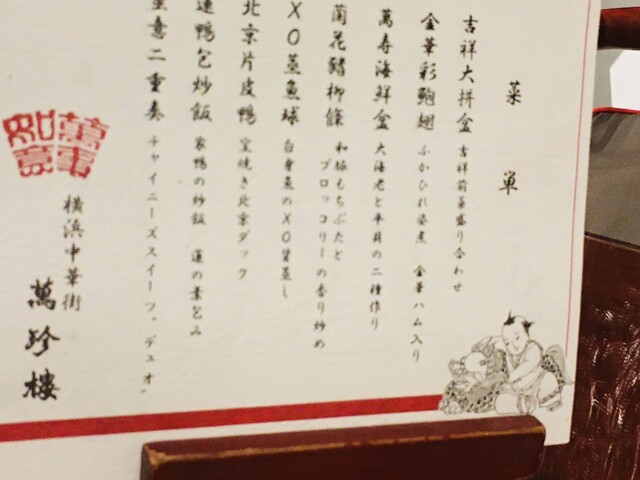 菜 単
吉祥大拼盒 吉祥前菜盛り合わせ
金華彩鮑翅 ふかひれ姿煮 金華ハム入り
萬寿海鮮盒 大海老と平貝の二種作り
蘭花豬柳條 和豚もちぶたと
ブロッコリーの香り炒め
XO蒸魚球 白身魚のXO醤蒸し
北京片皮鴨 窯焼き北京ダック
蓮鴨包炒飯 家鴨の炒飯 蓮の葉包み
意二重奏 チャイニーズスイーツ"デュオ"
萬事如意
横浜中華街
萬珍樓